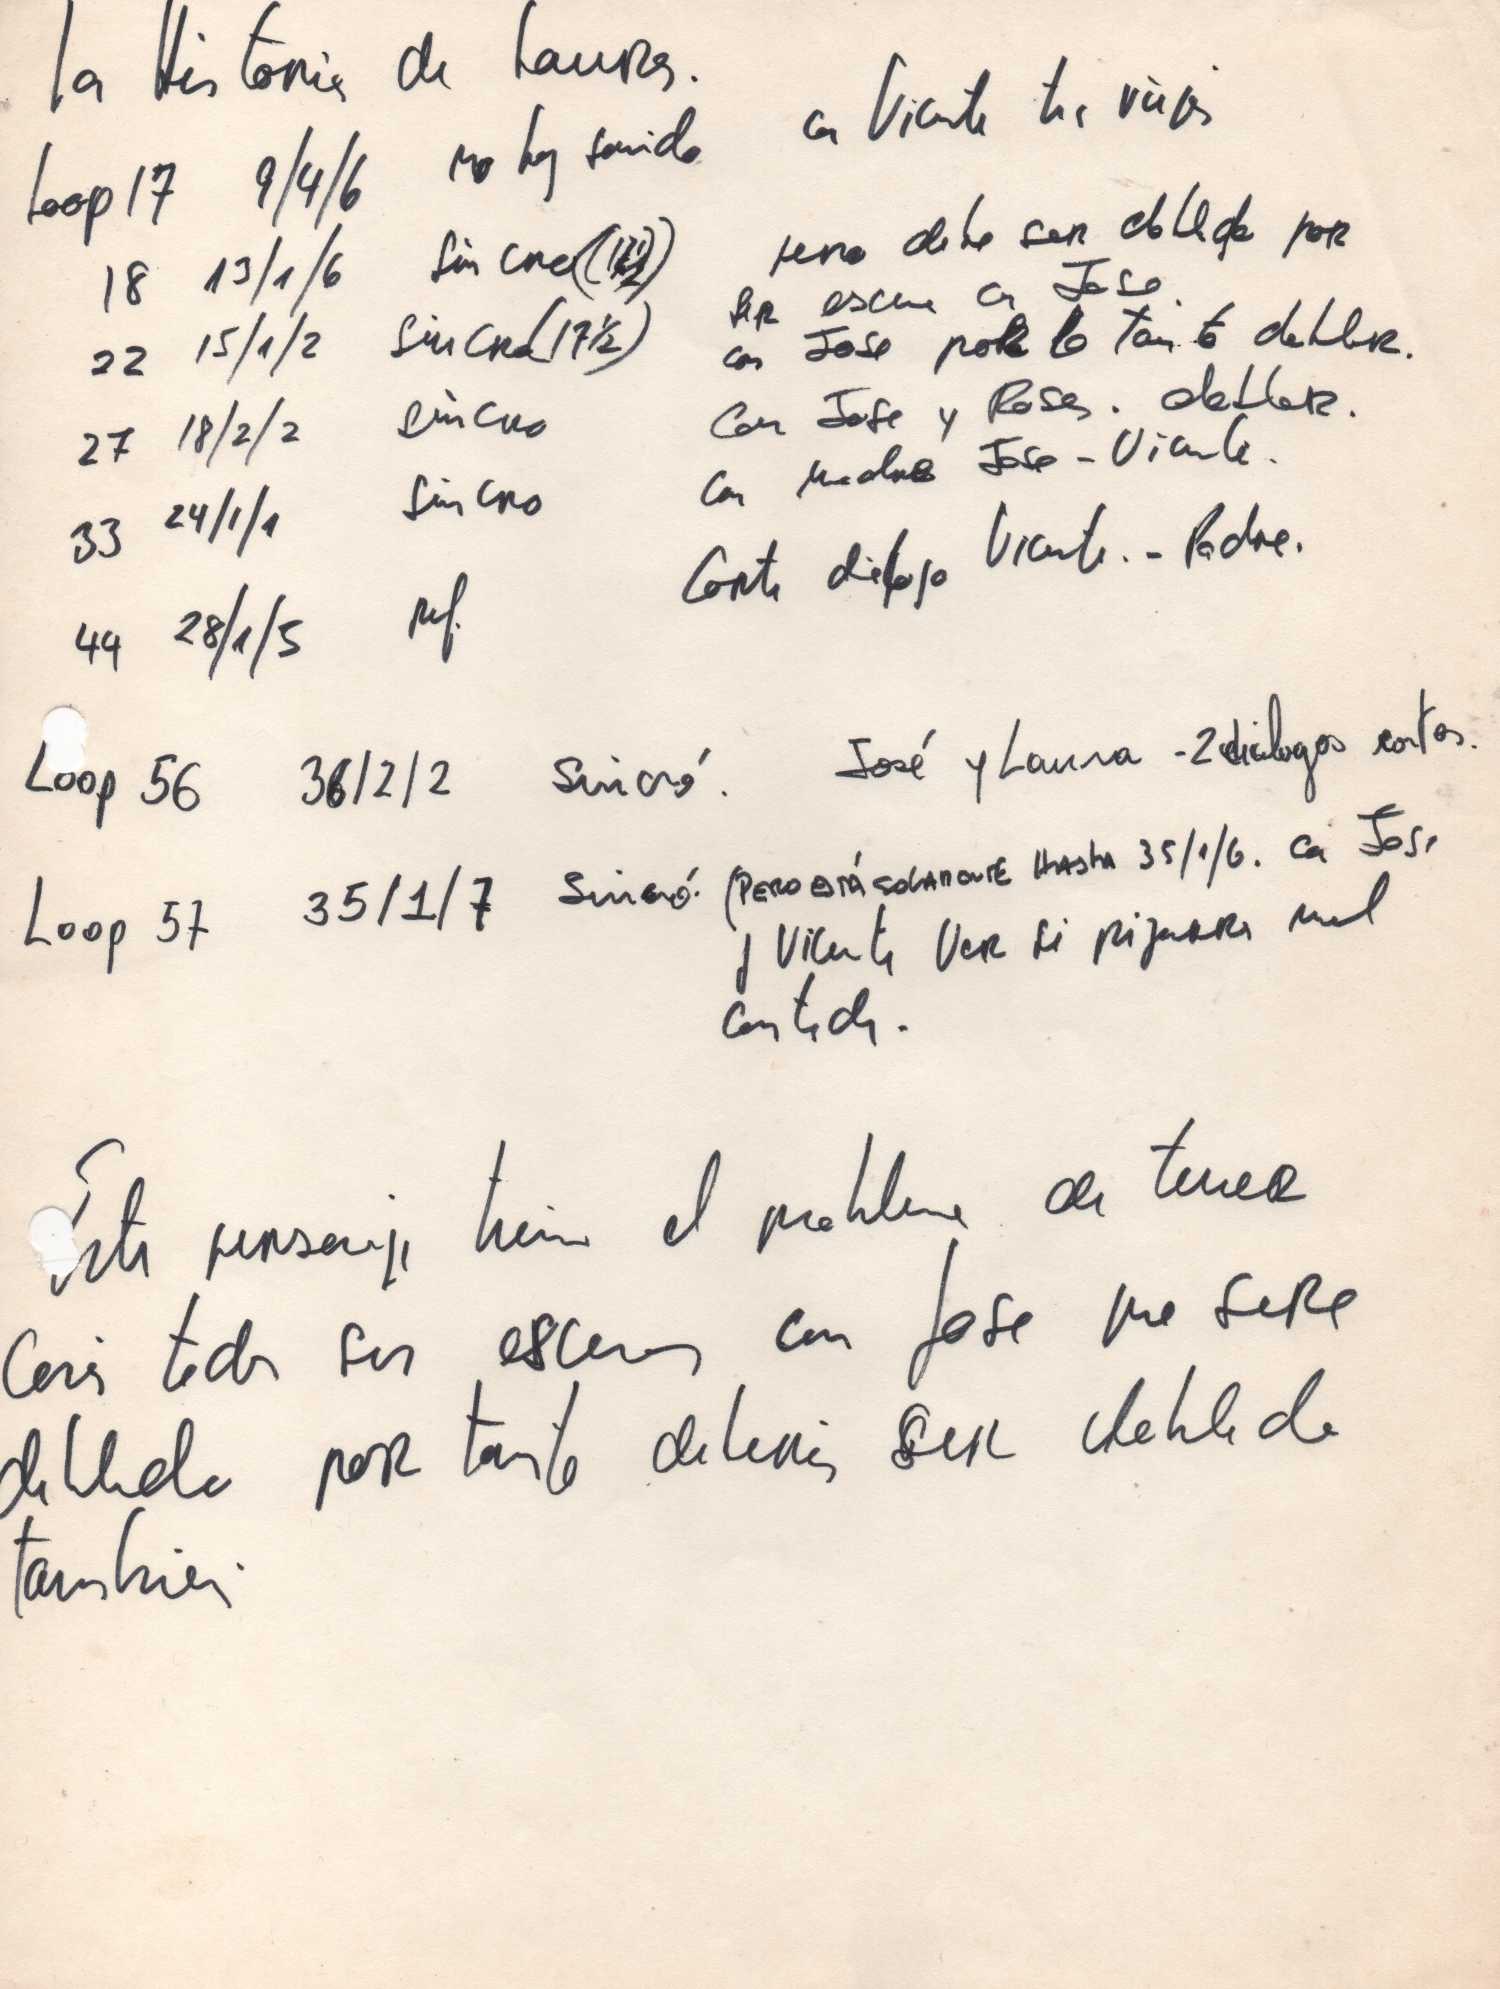 La Historia de Laura.
Loop 17 9/4/6 no hay sonido con Vicente
18 13/1/6 Sincro pero debe ser doblada por
ser escena con Jose.
22 15/1/2 Sincro (17 1/2) con Jose por lo tanto doblar.
27 18/2/2 Sincro Con Jose y Rosa. doblar.
33 24/1/1 Sincro Con madre Jose - Vicente.
44 28/1/5 ref. Corto dialogo Vicente. - Padre.
Loop 56 36/2/2 Sincró. José y Laura - 2 dialogos cortos.
Loop 57 35/1/7 Sincró. (PERO ESTÁ SOLAMENTE HASTA 35/1/6. con Jose
y Vicente Ver si mal
cortada.
Este personaje tiene el problema de tener
casi todas sus escenas con Jose que sera
doblado por tanto deberia ser doblada
tambien.